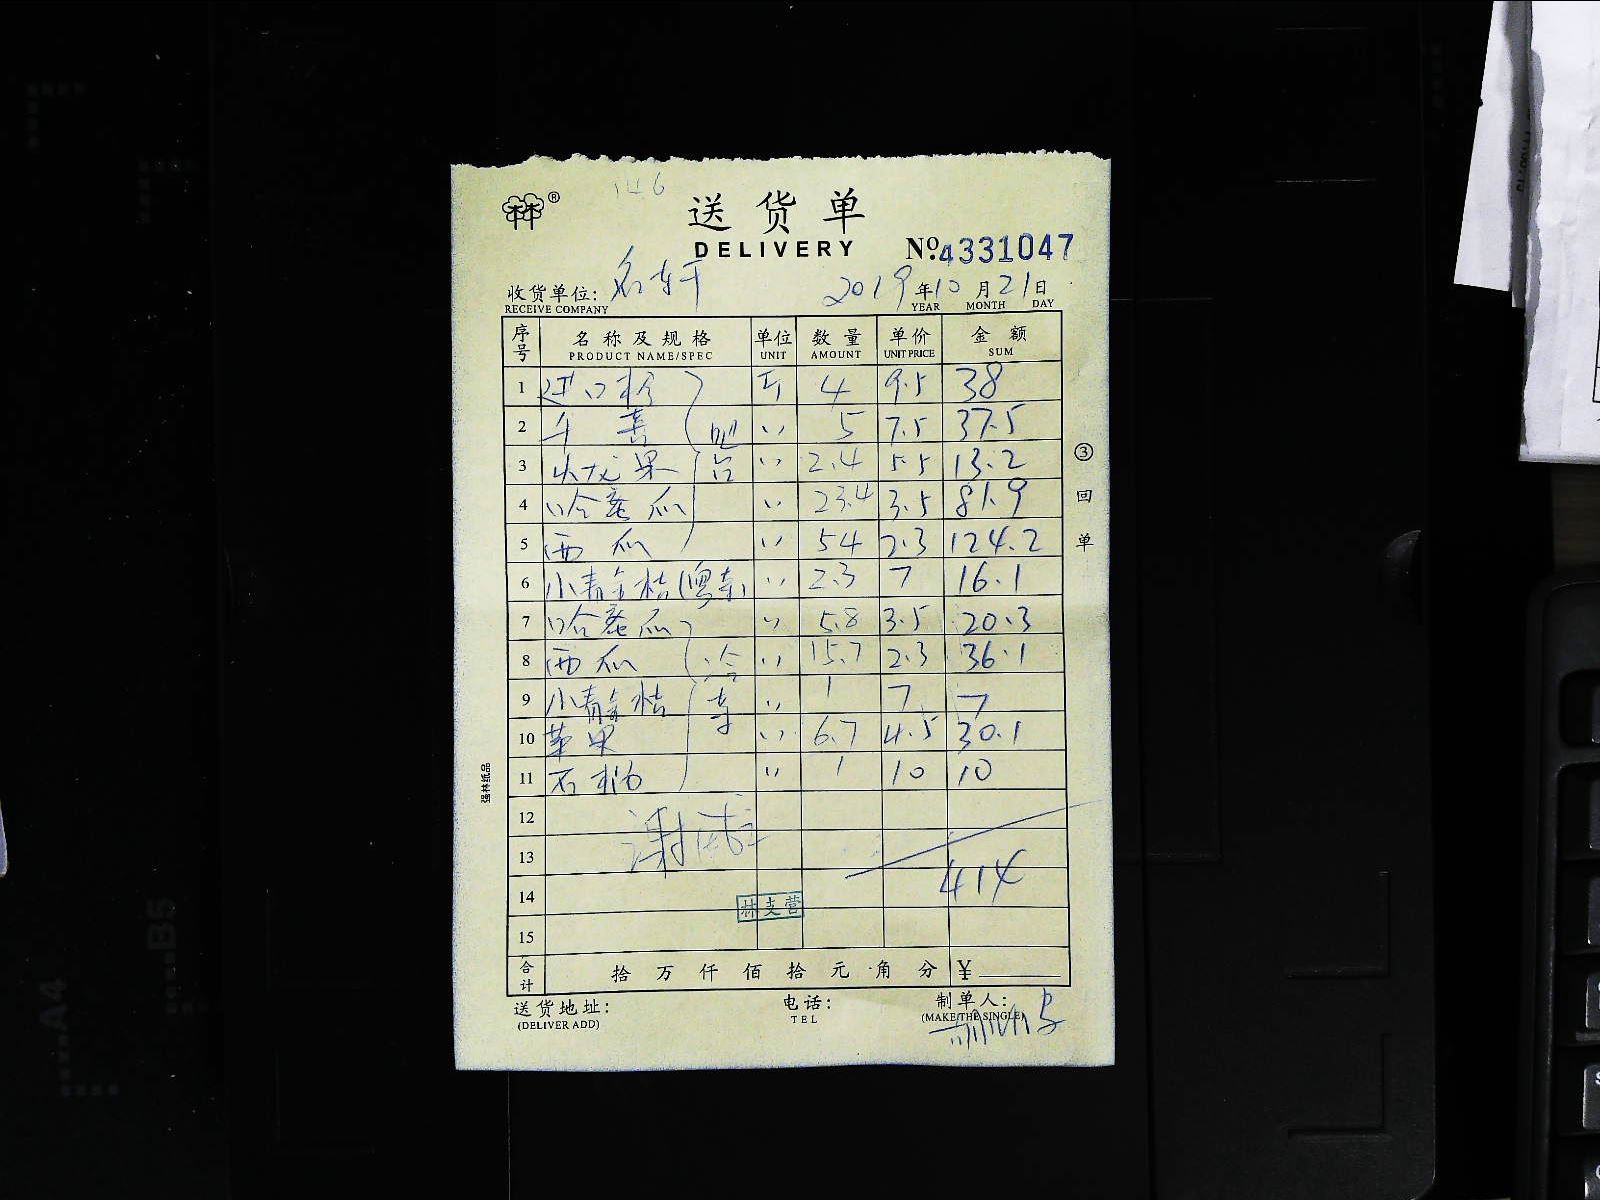 146
林®
送货单
DELIVERY
№4331047
收货单位: 名轩 2019年10月21日
RECEIVE COMPANY YEAR MONTH DAY
序号 名称及规格 单位 数量 单价 金额
PRODUCT NAME/SPEC UNIT AMOUNT UNIT PRICE SUM
1 进口柠 斤 4 9.5 38
2 千喜 吧 〃 5 7.5 37.5
3 火龙果 台 〃 2.4 5.5 13.2
4 哈蜜瓜 〃 23.4 3.5 81.9
5 西瓜 〃 54 2.3 124.2
6 小青金桔 〃 2.3 7 16.1
7 哈蜜瓜 〃 5.8 3.5 20.3
8 西瓜 〃 15.7 2.3 36.1
9 小青金桔 〃 1 7 7
10 苹果 〃 6.7 4.5 30.1
11 石榴 〃 1 10 10
12
13
414
14
林支营
15
合计 拾 万 仟 佰 拾 元 角 分 ¥
送货地址: 电话: 制单人:
(DELIVER ADD) TEL (MAKE THE SINGLE)
③回单
强林纸品
A4
B5